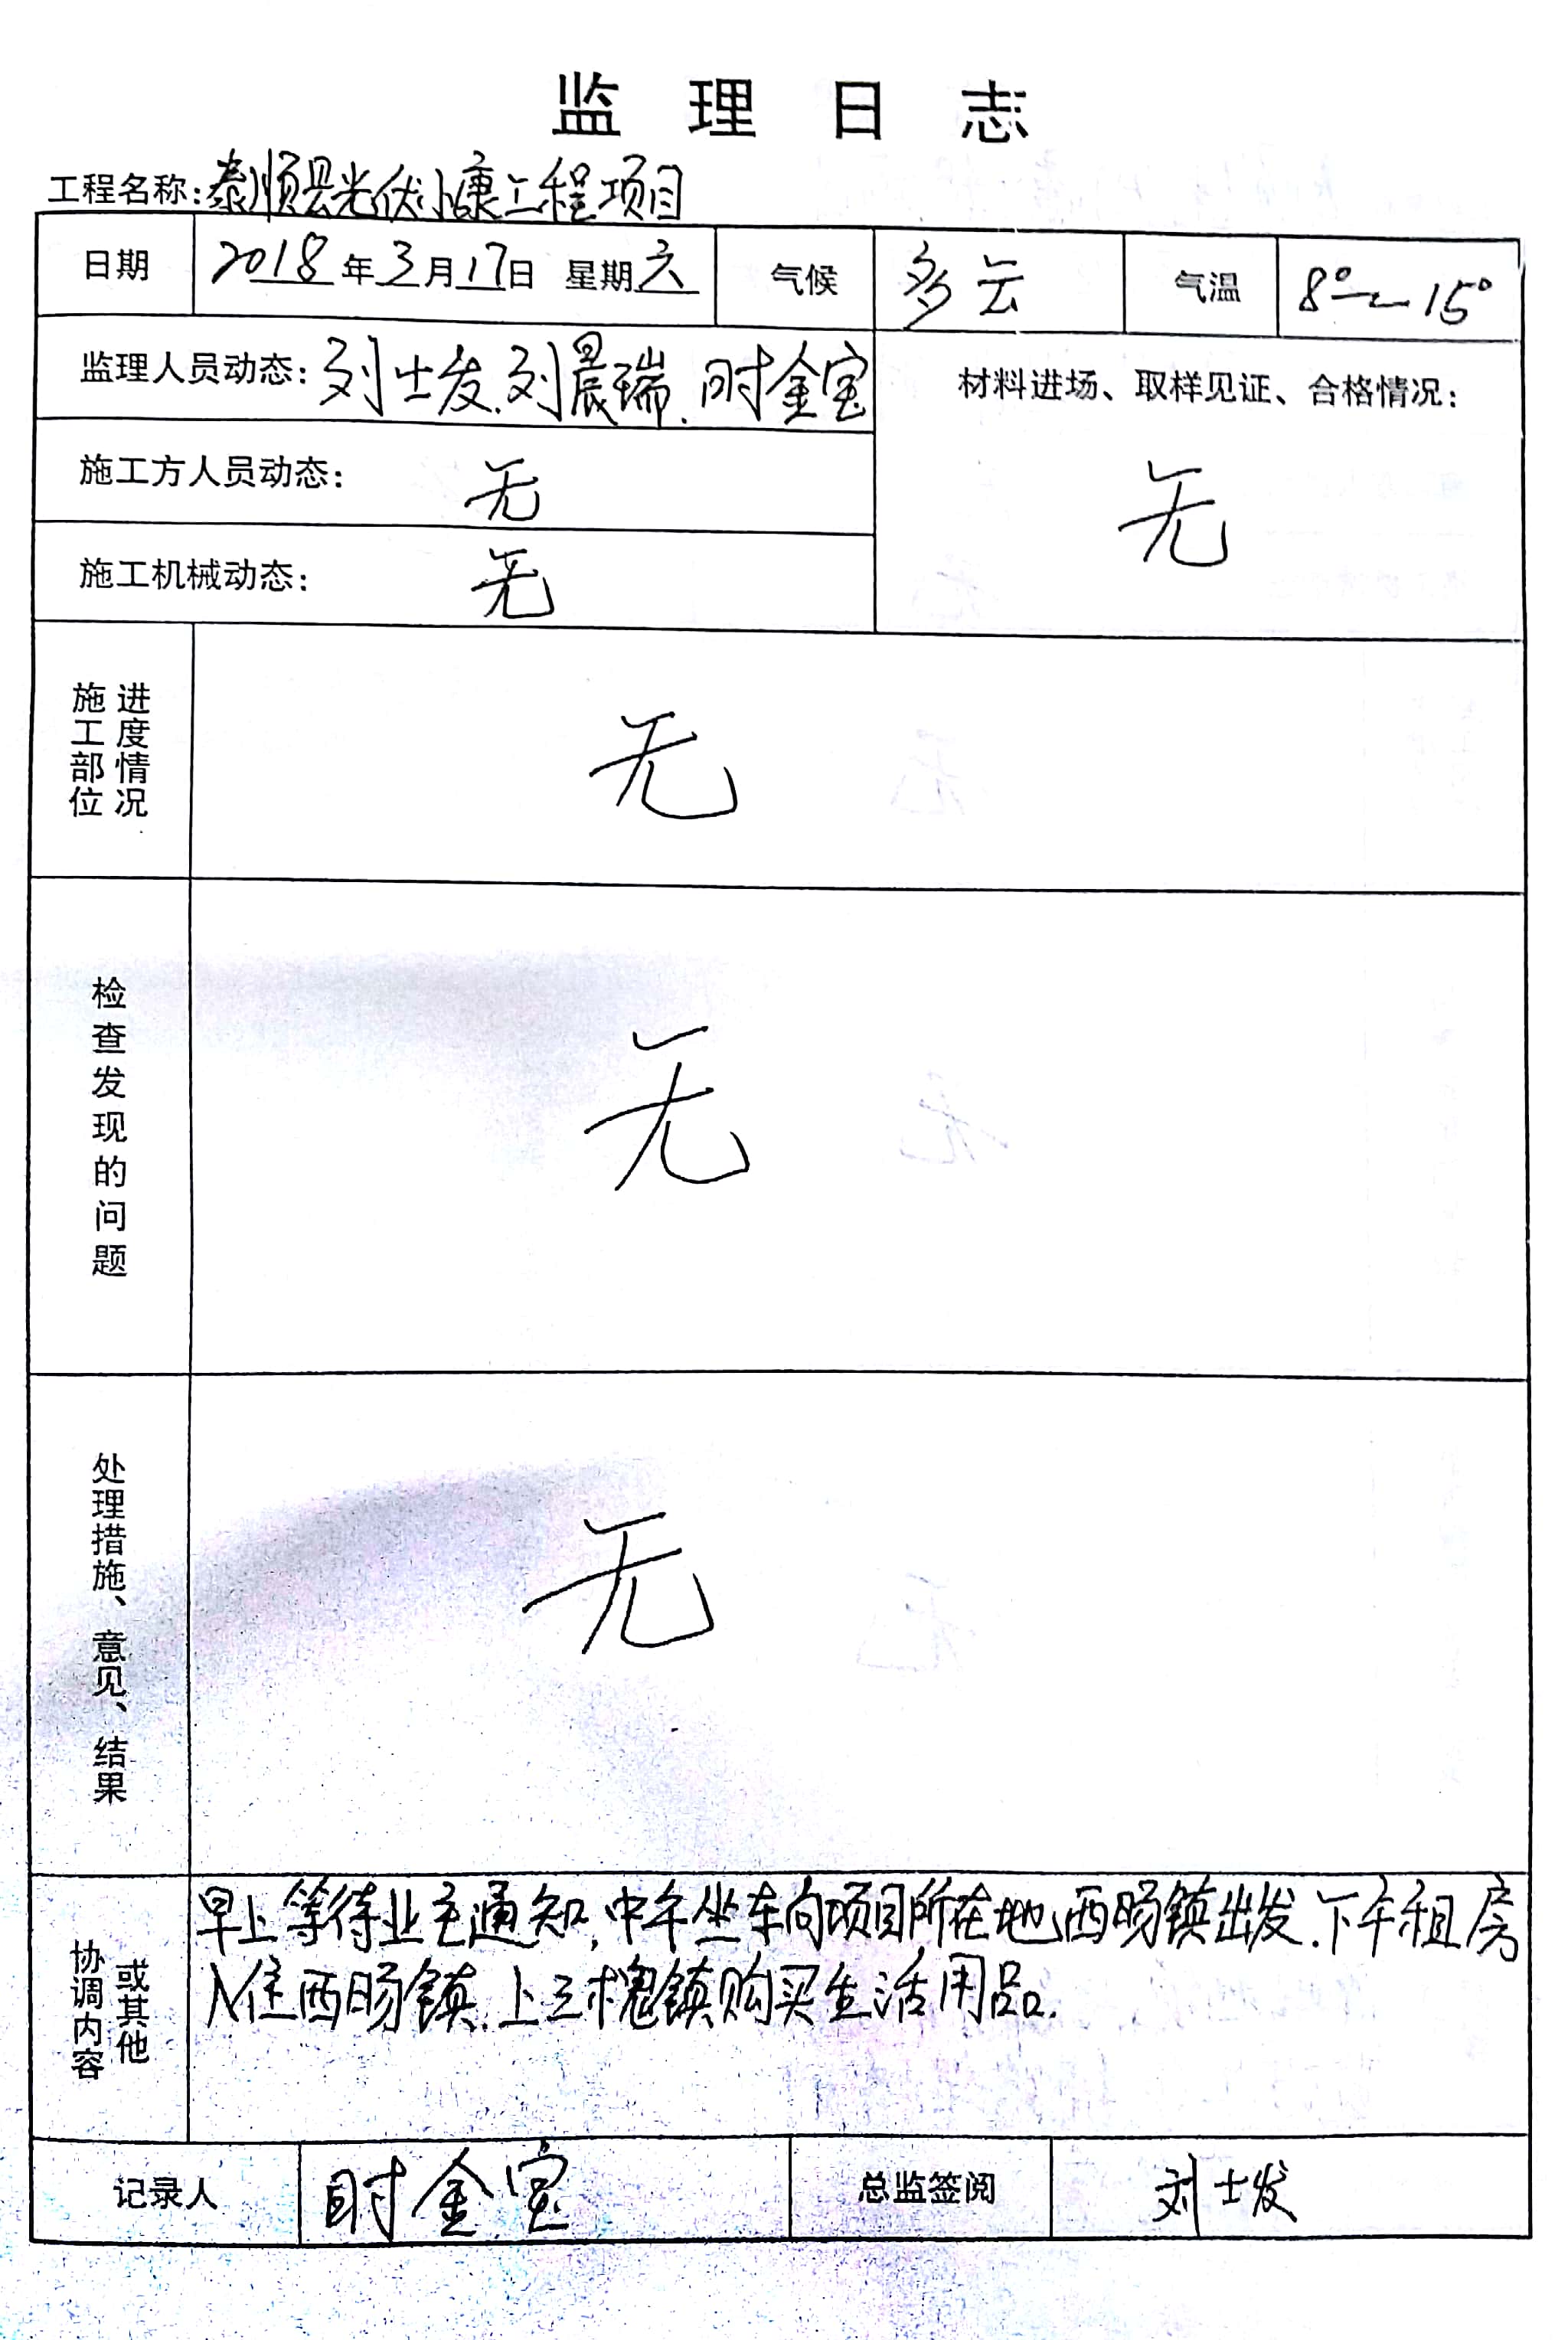 监理日志
工程名称:泰顺县光伏小康工程项目
日期 2018年3月17日 星期六 气候 多云 气温 8°~15°
监理人员动态:刘士发.刘晨瑞.时金宝 材料进场、取样见证、合格情况:
施工方人员动态: 无 无
施工机械动态: 无
施工部位 进度情况 无
检查发现的问题 无
处理措施、意见、结果 无
协调内容 或其他 早上等待业主通知,中午坐车向项目所在地西旸镇出发.下午租房
入住西旸镇.上三槐镇购买生活用品.
记录人 时金宝 总监签阅 刘士发